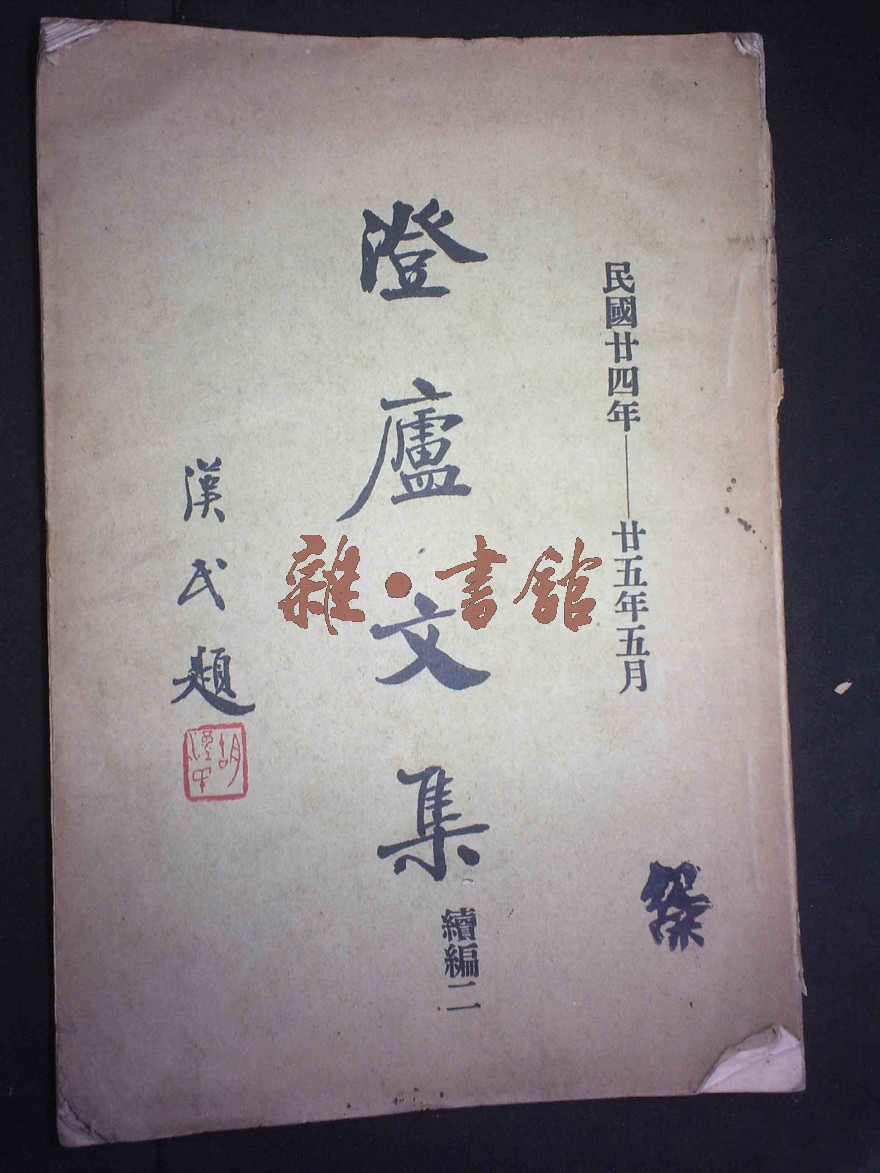 民國廿四年——廿五年五月
澄廬文集
續編二
漢民題
雜·書館